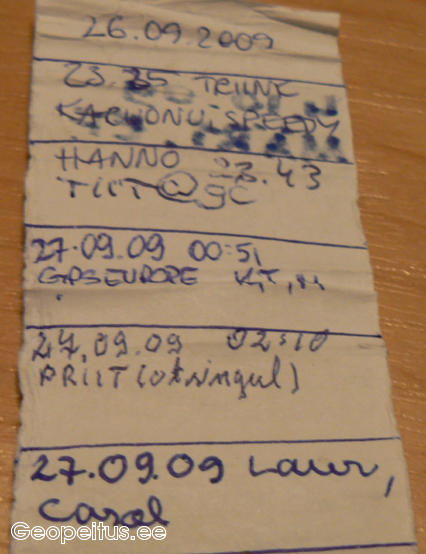 26.09.2009
23.35 TRIINK
SPEEDY
HANNO 23.43
TIIT@gc
27.09.09 00:51
GPSEUROPE
27.09.09 02:10
PRIIT (otsingul)
27.09.09 Laur,
Carol
Geopeitus.ee